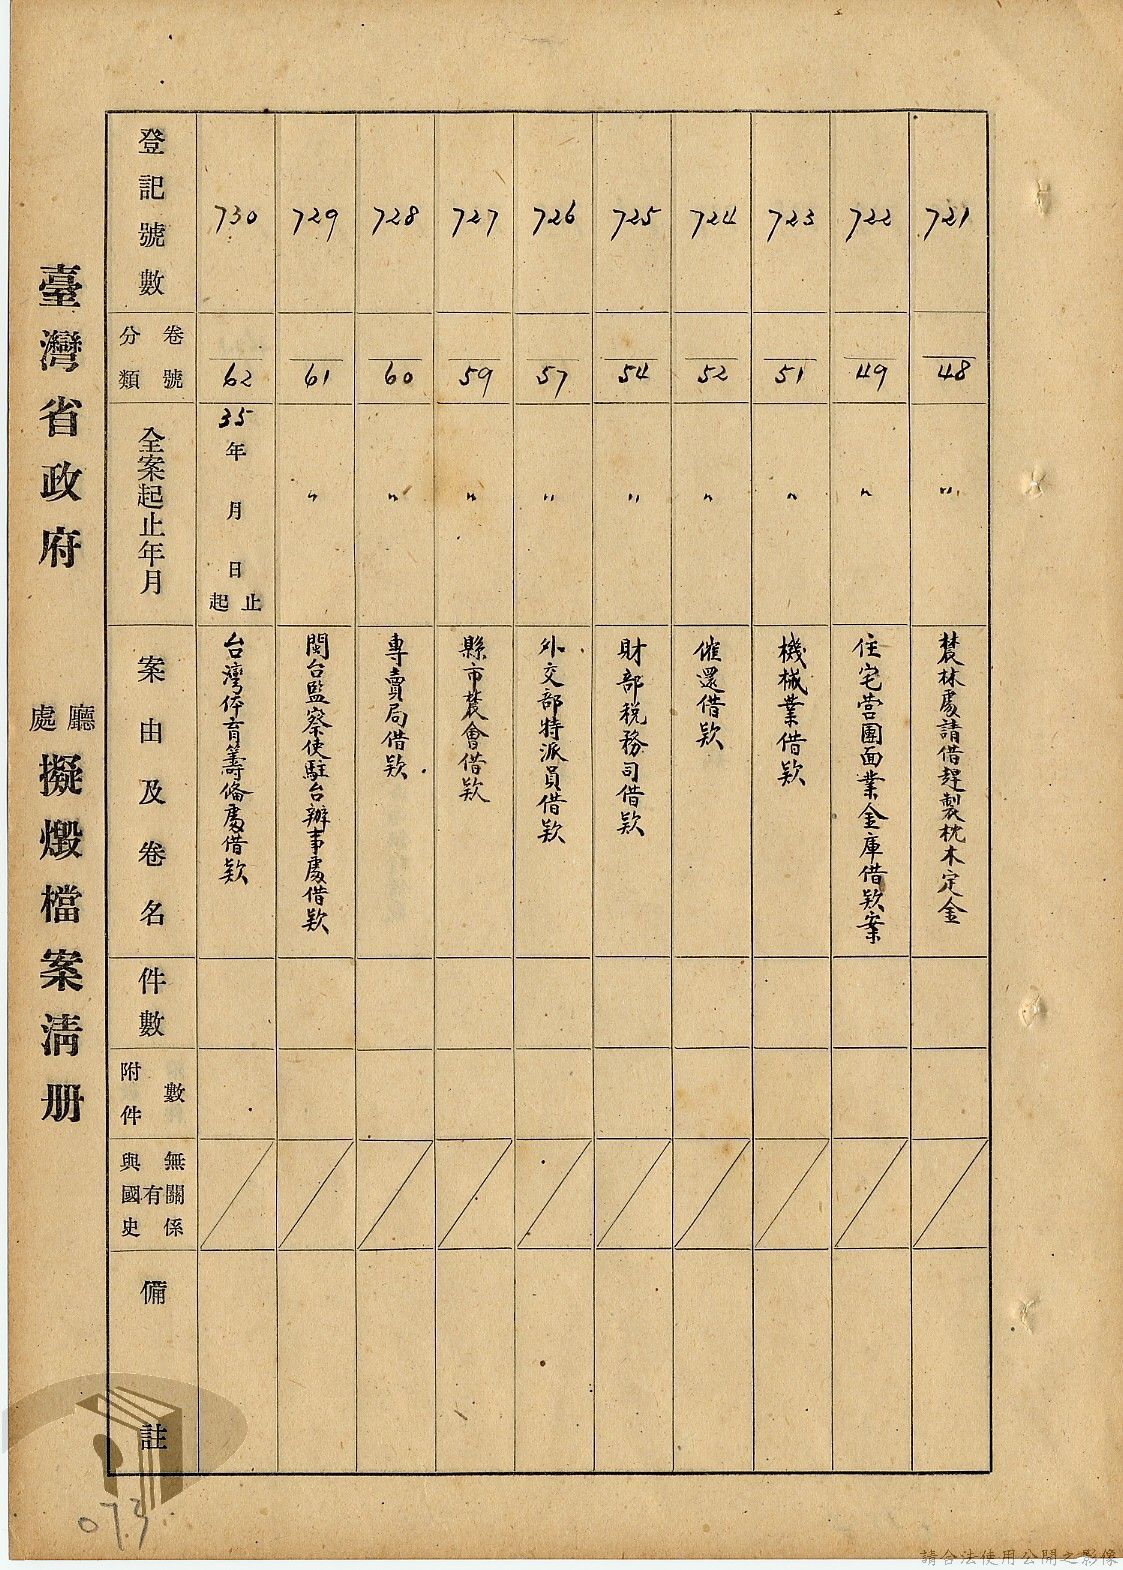 臺灣省政府 廳處 擬燬檔案清册
登記號數
卷號
分類
全案起止年月
案由及卷名
件數
附件數
與國史有無關係
備註
721
48
〃
農林處請借趕製枕木定金
722
49
〃
住宅营團面業金庫借欵案
723
51
〃
機械業借欵
724
52
〃
催還借欵
725
54
〃
財部税務司借欵
726
57
〃
外交部特派員借欵
727
59
〃
縣市農會借欵
728
60
〃
專賣局借欵
729
61
〃
閩台監察使駐台辦事處借欵
730
62
35年 月 日起止
台灣体育籌偹處借欵
073
請合法使用公開之影像